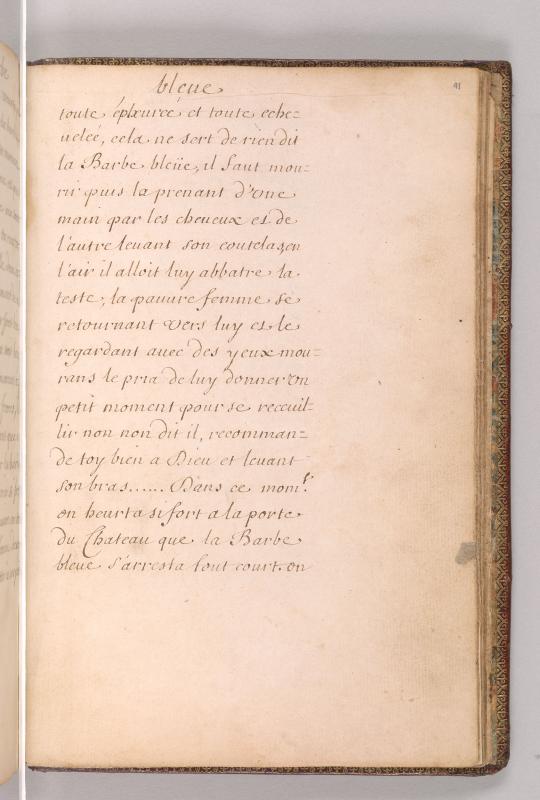 bleue
41
toute éploreé et toute eche=
uelée, cela ne sert de rien dit
la Barbe bleüe, il faut mou=
rir puis la prenant d'vne
main par les cheueux et de
l'autre leuant son coutelas en
l'air il alloit luy abbatre la
teste, la pauure femme se
retournant vers luy et le
regardant auec des yeux mou=
rans le pria de luy donner vn
petit moment pour se receuil=
lir non non dit il, recomman=
de toy bien a Dieu et leuant
son bras...... Dans ce momt.
on heurta si fort a la porte
du Chateau que la Barbe
bleue s'arresta tout court. on